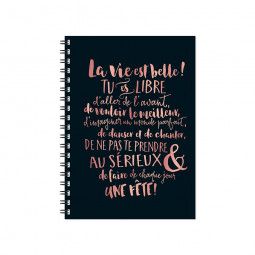 La vie est belle!
TU es LIBRE
d'aller de l'avant,
de vouloir le meilleur,
d'imaginer un monde parfait,
de danser et de chanter,
DE NE PAS TE PRENDRE
AU SÉRIEUX &
de faire de chaque jour
UNE FÊTE!